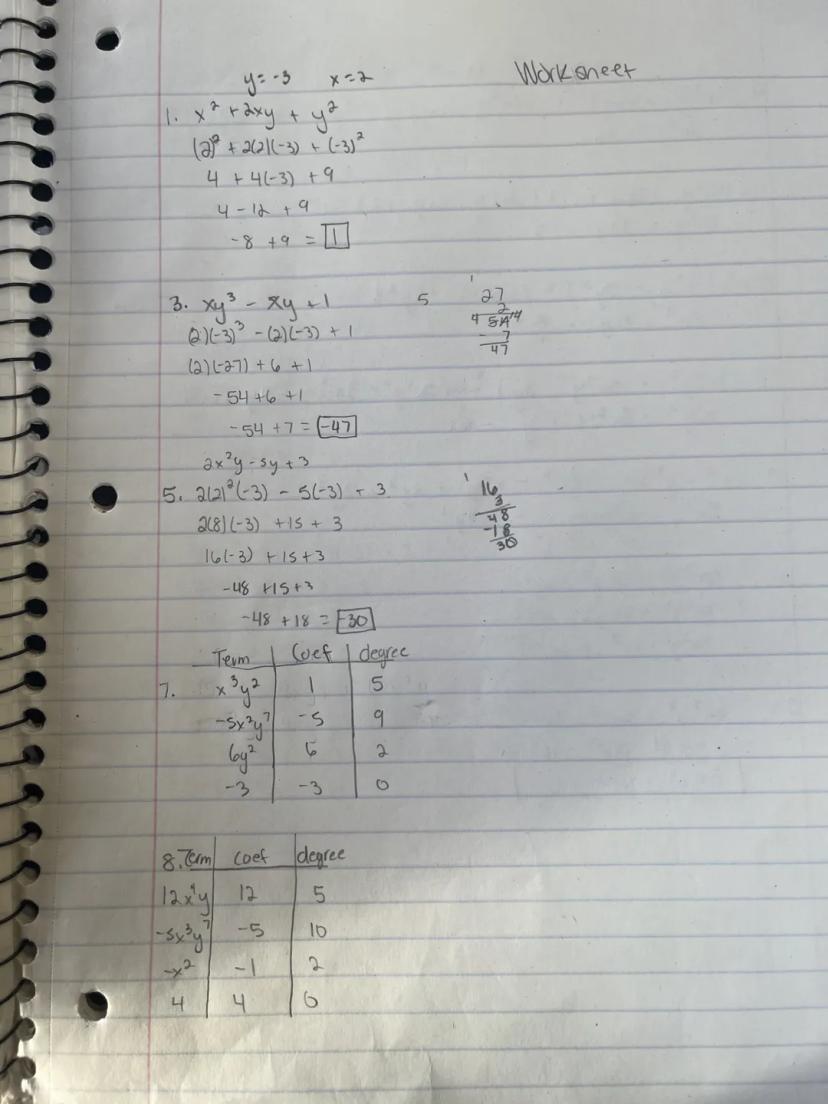 y=-3 x=2
Worksheet
1. x² + 2xy + y²
(2)² + 2(2)(-3) + (-3)²
4 + 4(-3) + 9
4 - 12 + 9
-8 + 9 = 1
3. xy³ - xy + 1
(2)(-3)³ - (2)(-3) + 1
(2)(-27) + 6 + 1
-54 + 6 + 1
-54 + 7 = -47
5
1
27
2
4 54 14
- 7
47
2x²y - 5y + 3
5. 2(2)²(-3) - 5(-3) + 3
2(8)(-3) + 15 + 3
16(-3) + 15 + 3
-48 + 15 + 3
-48 + 18 = -30
1
16
3
48
-18
30
Term | Coef | degree
7. x³y² | 1 | 5
-5x²y⁷ | -5 | 9
6y² | 6 | 2
-3 | -3 | 0
8. Term | Coef | degree
12x⁴y | 12 | 5
-5x³y⁷ | -5 | 10
-x² | -1 | 2
4 | 4 | 0